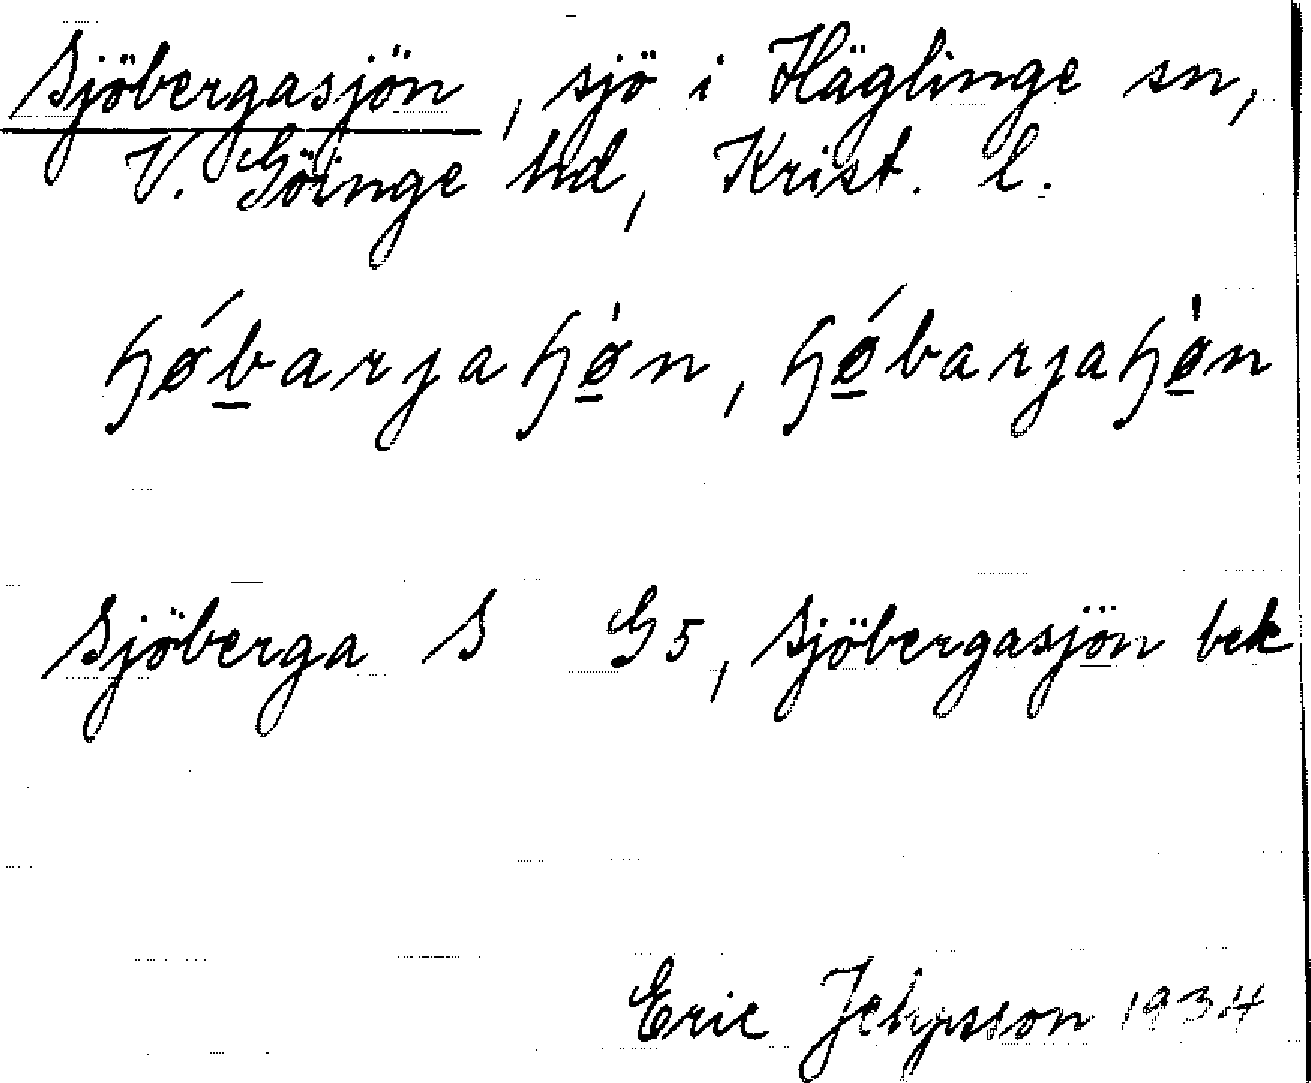 Sjöbergasjön, sjö i Häglinge sn,
V. Göinge hd, Krist. l.
ɧǿb̲arjaɧø̲̍n, ɧǿ̲barjaɧø̲̍n
Sjöberga S G5, Sjöbergasjön bek
Eric Jehpsson 1934